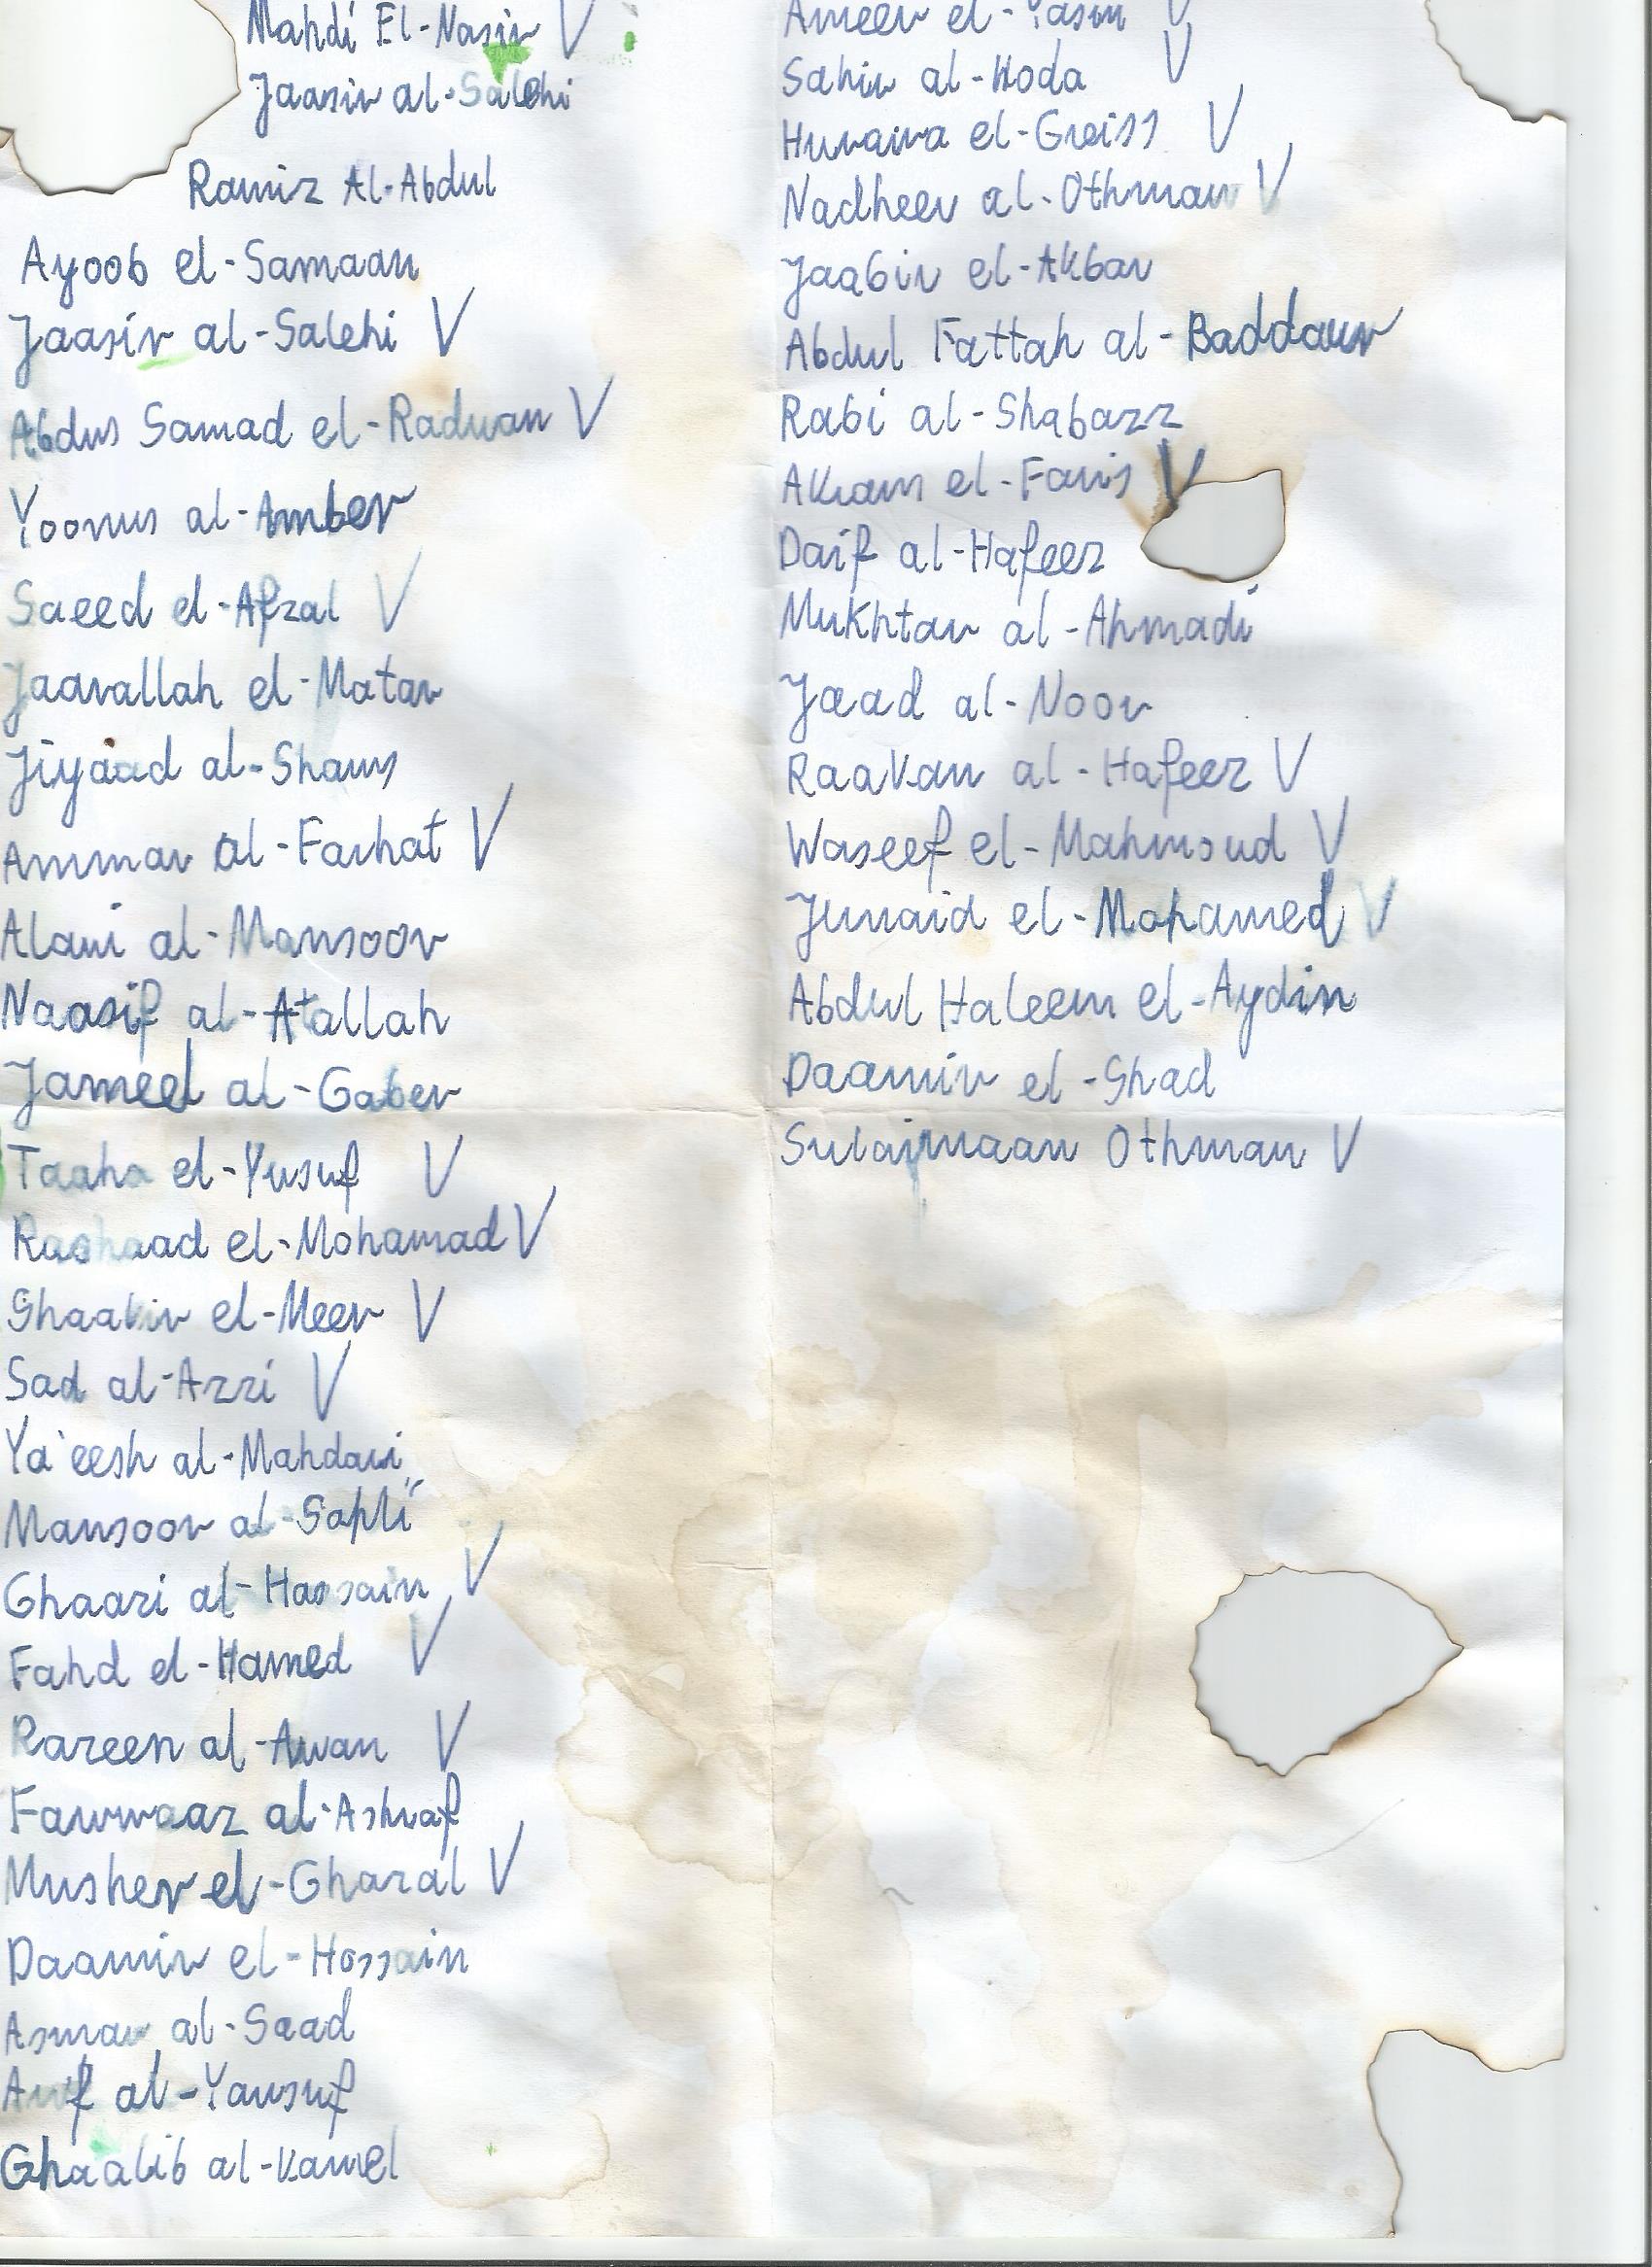 Mahdi El-Nasir V
Jaasir al-Salehi
Ramiz Al-Abdul
Ayoob el-Samaan
Jaasir al-Salehi V
Abdus Samad el-Radwan V
Yoonus al-Amber
Saeed el-Afzal V
Jaarallah el-Matar
Jiyaad al-Shams
Ammar al-Farhat V
Alawi al-Mansoor
Naasif al-Atallah
Jameel al-Gaber
Taaha el-Yusuf V
Rashaad el-Mohamad V
Shaakir el-Meer V
Sad al-Azzi V
Ya'eesh al-Mahdavi
Mansoor al-
Ghaazi al-Hossain V
Fahd el-Hamed V
Razeen al-Awan V
Fawwaaz al-Ashraf
Musher el-Gharal V
Daamir el-Hossain
Asmar al-Saad
al-Yousuf
Ghaalib al-Kamel
Ameer el-Yasin V
Sahir al-Hoda V
Huraira el-Greiss V
Nadheer al-Othman V
Jaabir el-Akbar
Abdul Fattah al-Baddour
Rabi al-Shabazz
Akram el-Faris V
Daif al-Hafeez
Mukhtar al-Ahmadi
Jaad al-Noor
Raakan al-Hafeez V
Waseef el-Mahmoud V
Junaid el-Mohamed V
Abdul Haleem el-Aydin
Daamir el-Shad
Sulaimaan Othman V